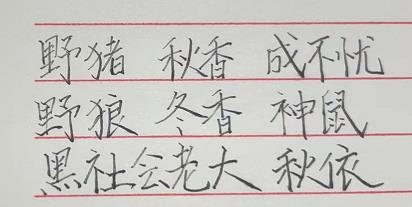 野猪 秋香 成不忧
野狼 冬香 神鼠
黑社会老大 秋依